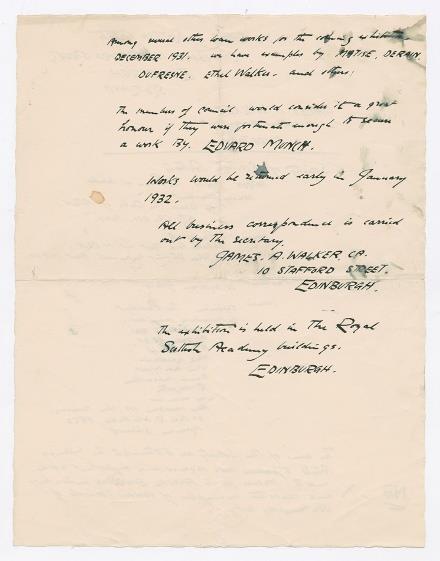 Among several other loan works for the coming exhibition
DECEMBER 1931. we have examples by MATISE, DERAIN
DUFRESNE, Ethel Walker. and others.
The members of council would consider it a great
honour if they were fortunate enough to secure
a work By. EDVARD MUNCH.
Works would be returned early in January
1932.
All business correspondence is carried
out by the secretary.
JAMES. A. WALKER, CA.
10 STAFFORD STREET.
EDINBURGH.
The exhibition is held in The Royal
Scottish Academy buildings.
EDINBURGH.